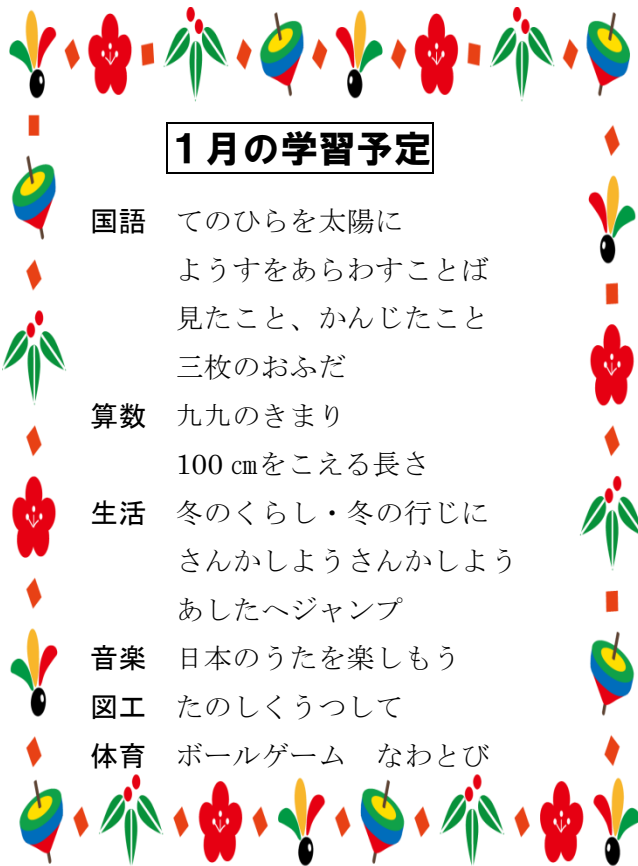 １月の学習予定
国語　てのひらを太陽に
ようすをあらわすことば
見たこと、かんじたこと
三枚のおふだ
算数　九九のきまり
100 ㎝をこえる長さ
生活　冬のくらし・冬の行じに
さんかしようさんかしよう
あしたへジャンプ
音楽　日本のうたを楽しもう
図工　たのしくうつして
体育　ボールゲーム　なわとび